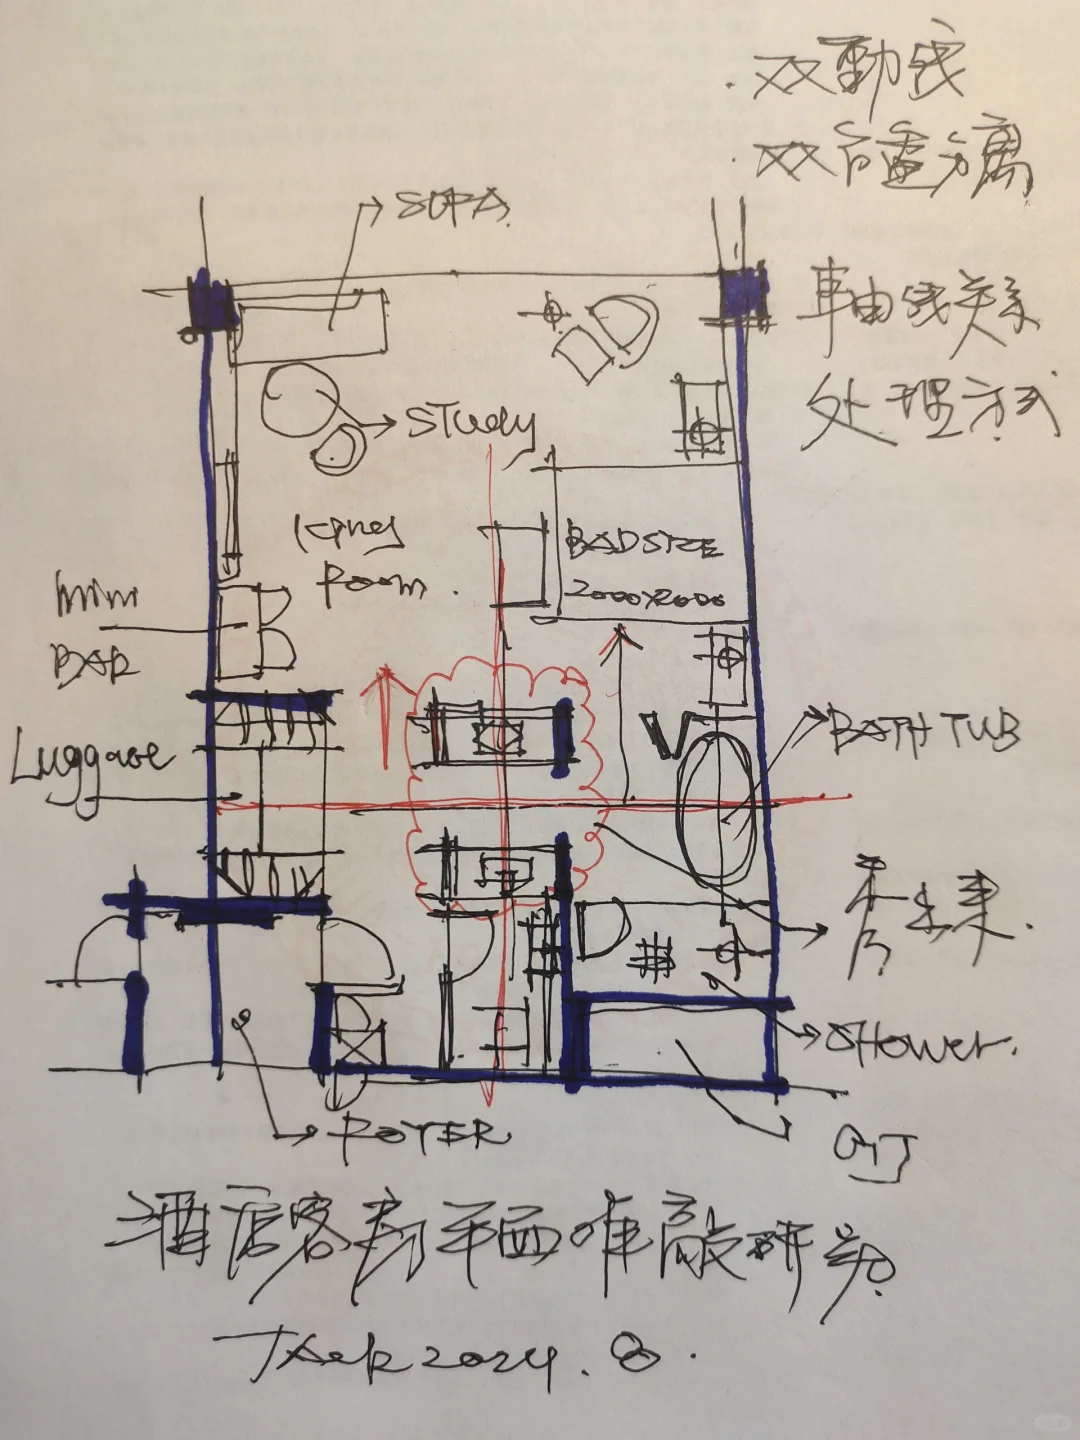 · 双動线
· 双台盡分离
轴线关系
处理方式
SOFA
STUDY
King
Room.
BADSIZE
2000x2000
mini
BAR
Luggage
BATH TUB
SHower.
FOYER
酒店客房平面推敲研究
JAck 2024.8.